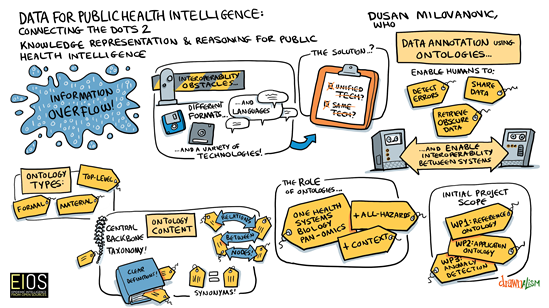 DATA FOR PUBLIC HEALTH INTELLIGENCE:
CONNECTING THE DOTS 2
KNOWLEDGE REPRESENTATION & REASONING FOR PUBLIC
HEALTH INTELLIGENCE
DUSAN MILOVANOVIC,
WHO
INFORMATION
OVERFLOW!
INTEROPERABILITY
OBSTACLES...
DIFFERENT
FORMATS...
...AND LANGUAGES
...AND A VARIETY OF
TECHNOLOGIES!
THE SOLUTION..?
UNIFIED
TECH?
SAME
TECH?
DATA ANNOTATION USING
ONTOLOGIES...
ENABLE HUMANS TO:
DETECT
ERRORS
SHARE
DATA
RETRIEVE
OBSCURE
DATA
...AND ENABLE
INTEROPERABILITY
BETWEEN SYSTEMS
ONTOLOGY
TYPES:
TOP-LEVEL
FORMAL
MATERIAL
CENTRAL
BACKBONE
TAXONOMY!
ONTOLOGY
CONTENT
RELATIONS
BETWEEN
NODES!
CLEAR
DEFINITIONS!
=
SYNONYMS!
THE ROLE
OF ONTOLOGIES...
ONE HEALTH
SYSTEMS
BIOLOGY
PAN-OMICS
+ ALL-HAZARDS
+ CONTEXT
INITIAL PROJECT
SCOPE
WP1: REFERENCE
ONTOLOGY
WP2: APPLICATION
ONTOLOGY
WP3: ANOMALY
DETECTION
EIOS
drawnalism